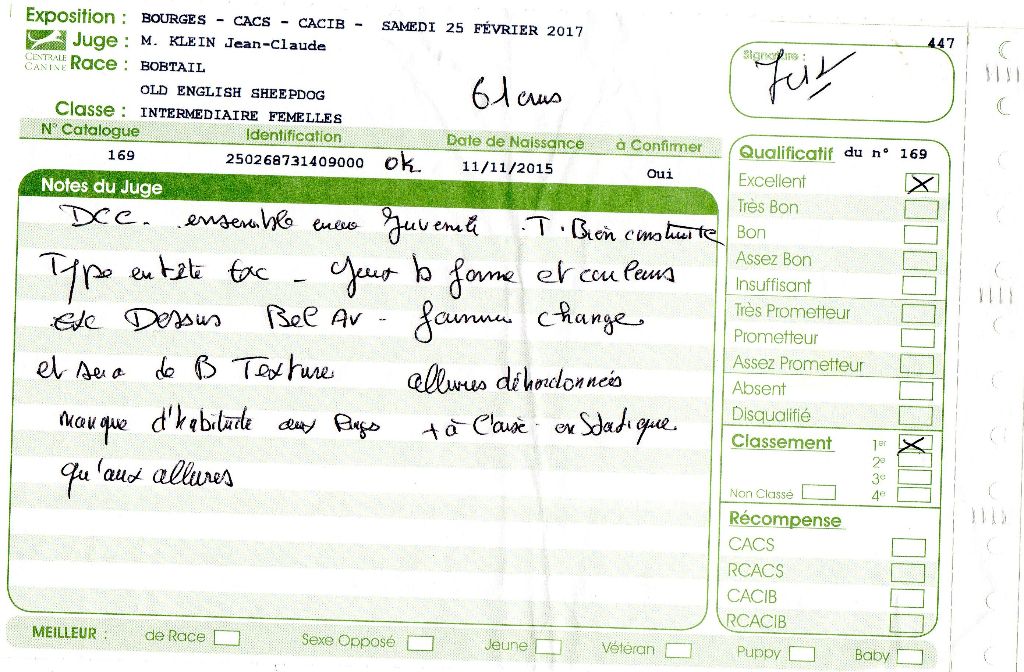 Exposition : BOURGES - CACS - CACIB - SAMEDI 25 FÉVRIER 2017
447
CENTRALE CANINE
Juge : M. KLEIN Jean-Claude
Signature :
Race : BOBTAIL
OLD ENGLISH SHEEPDOG
61 cms
Classe : INTERMEDIAIRE FEMELLES
N° Catalogue Identification Date de Naissance à Confirmer
169 250268731409000 OK 11/11/2015 Oui
Notes du Juge
DCC. ensemble Juvenile . T. Bien construite
Type en tête Exc - yeux b forme et couleurs
exc Dessus Bel Av - change
et sera de B Texture allures
manque d'habitude aux + à l'aise en Statique
qu'aux allures
Qualificatif du n° 169
Excellent X
Très Bon
Bon
Assez Bon
Insuffisant
Très Prometteur
Prometteur
Assez Prometteur
Absent
Disqualifié
Classement 1er X
2e
3e
Non Classé 4e
Récompense
CACS
RCACS
CACIB
RCACIB
MEILLEUR : de Race Sexe Opposé Jeune Vétéran Puppy Baby